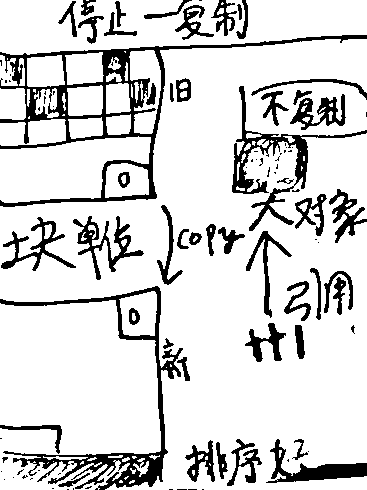 停止一复制
旧
不复制
0
大对象
块单位
copy
引用
++1
0
新
排序好